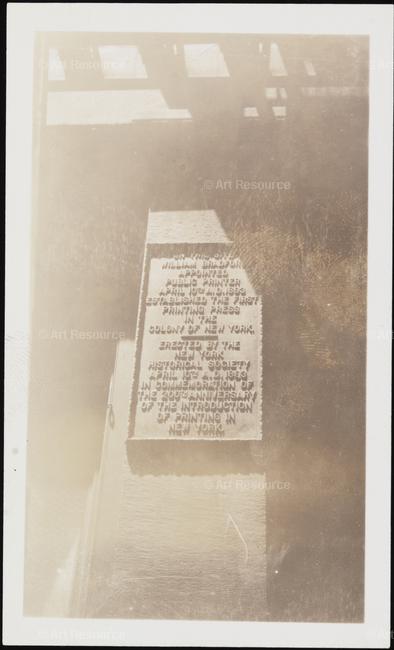 WILLIAM BRADFORD
APPOINTED
PUBLIC PRINTER
APRIL 10TH A.D. 1693
ESTABLISHED THE FIRST
PRINTING PRESS
IN THE
COLONY OF NEW YORK.
ERECTED BY THE
NEW YORK
HISTORICAL SOCIETY
APRIL 10TH A.D. 1893
IN COMMEMORATION OF
THE 200TH ANNIVERSARY
OF THE INTRODUCTION
OF PRINTING IN
NEW YORK.
© Art Resource
© Art Resource
© Art Resource
© Art Resource
© Art Resource